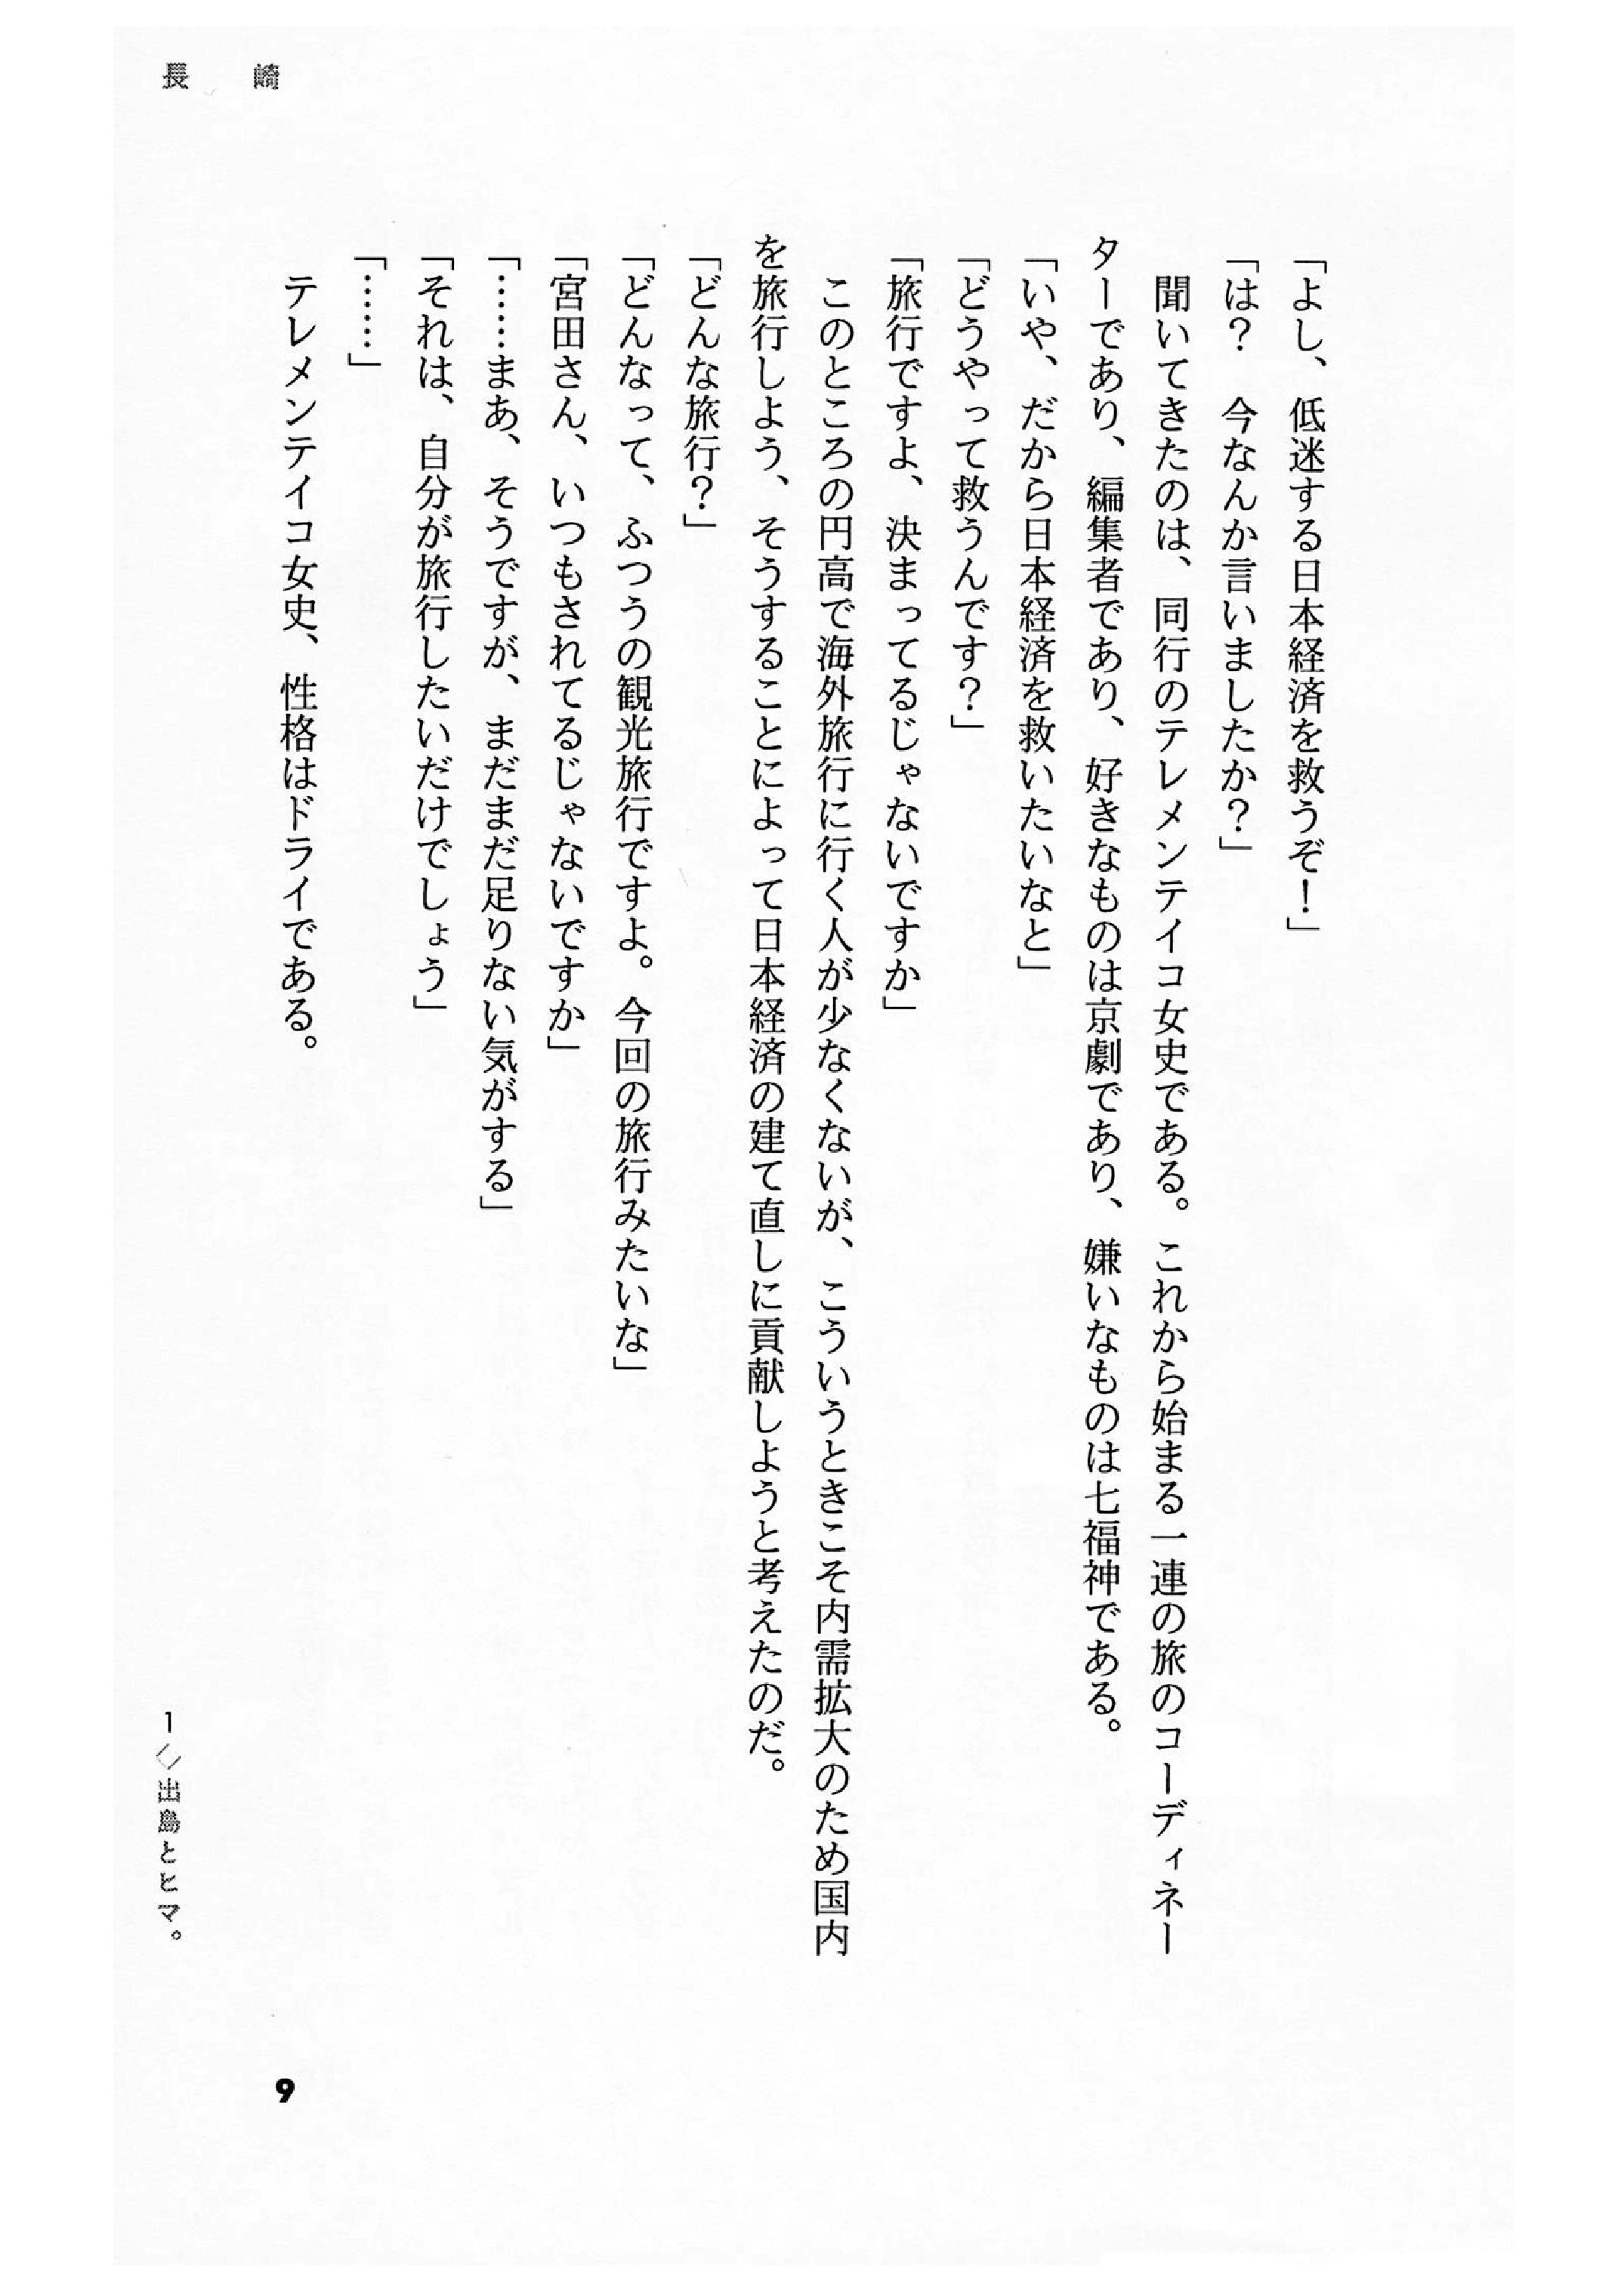 長崎
「よし、低迷する日本経済を救うぞ！」
「は？　今なんか言いましたか？」
　聞いてきたのは、同行のテレメンテイコ女史である。これから始まる一連の旅のコーディネー
ターであり、編集者であり、好きなものは京劇であり、嫌いなものは七福神である。
「いや、だから日本経済を救いたいなと」
「どうやって救うんです？」
「旅行ですよ、決まってるじゃないですか」
　このところの円高で海外旅行に行く人が少なくないが、こういうときこそ内需拡大のため国内
を旅行しよう、そうすることによって日本経済の建て直しに貢献しようと考えたのだ。
「どんな旅行？」
「どんなって、ふつうの観光旅行ですよ。今回の旅行みたいな」
「宮田さん、いつもされてるじゃないですか」
「……まあ、そうですが、まだまだ足りない気がする」
「それは、自分が旅行したいだけでしょう」
「……」
　テレメンテイコ女史、性格はドライである。
1◇出島とヒマ。
9